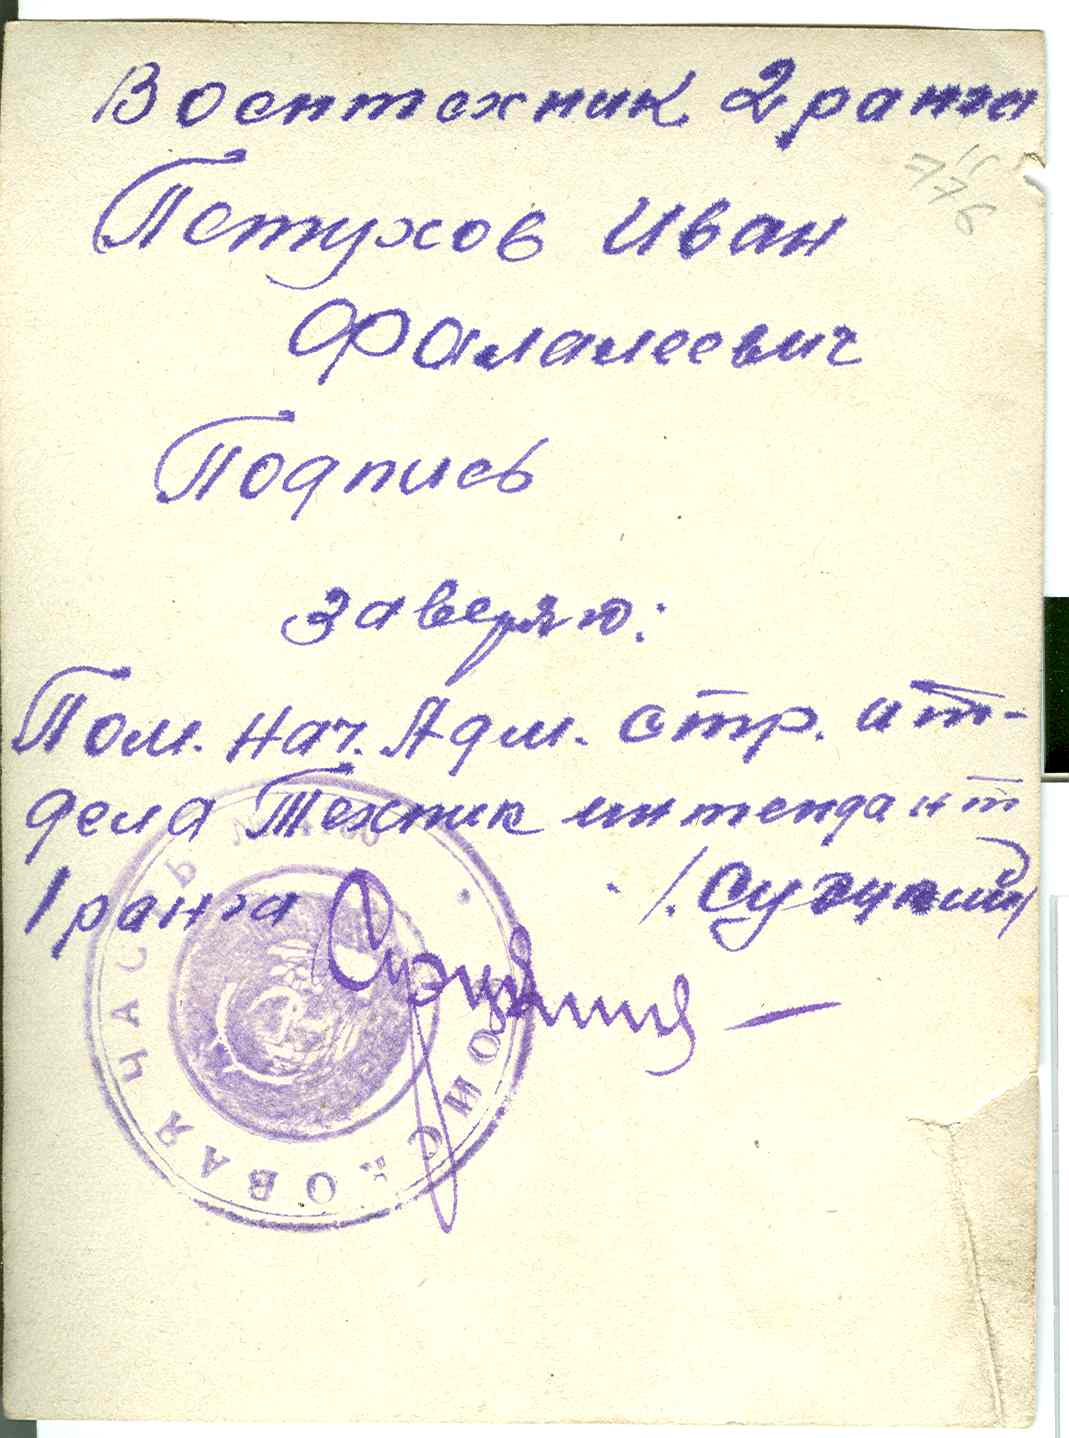 Воентехник 2 ранга
776
Петухов Иван
Фалалеевич
Подпись
заверяю:
Пом. Нач. Адм. стр. от-
дела Техник интендант
1 ранга /. Сузцкий/
ПОЛЕВАЯ ЧАСТЬ